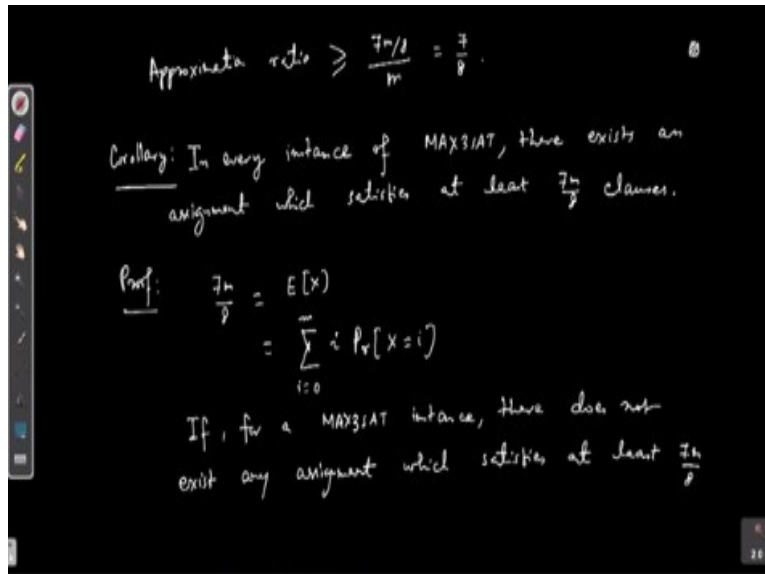 Approximation ratio ≥ 7m/8 / m = 7/8.
Corollary: In every instance of MAX3SAT, there exists an
assignment which satisfies at least 7m/8 clauses.
Proof: 7m/8 = E[X]
= ∑_{i=0}^{m} i Pr[X=i]
If, for a MAX3SAT intance, there does not
exist any assignment which satisfies at least 7m/8
20